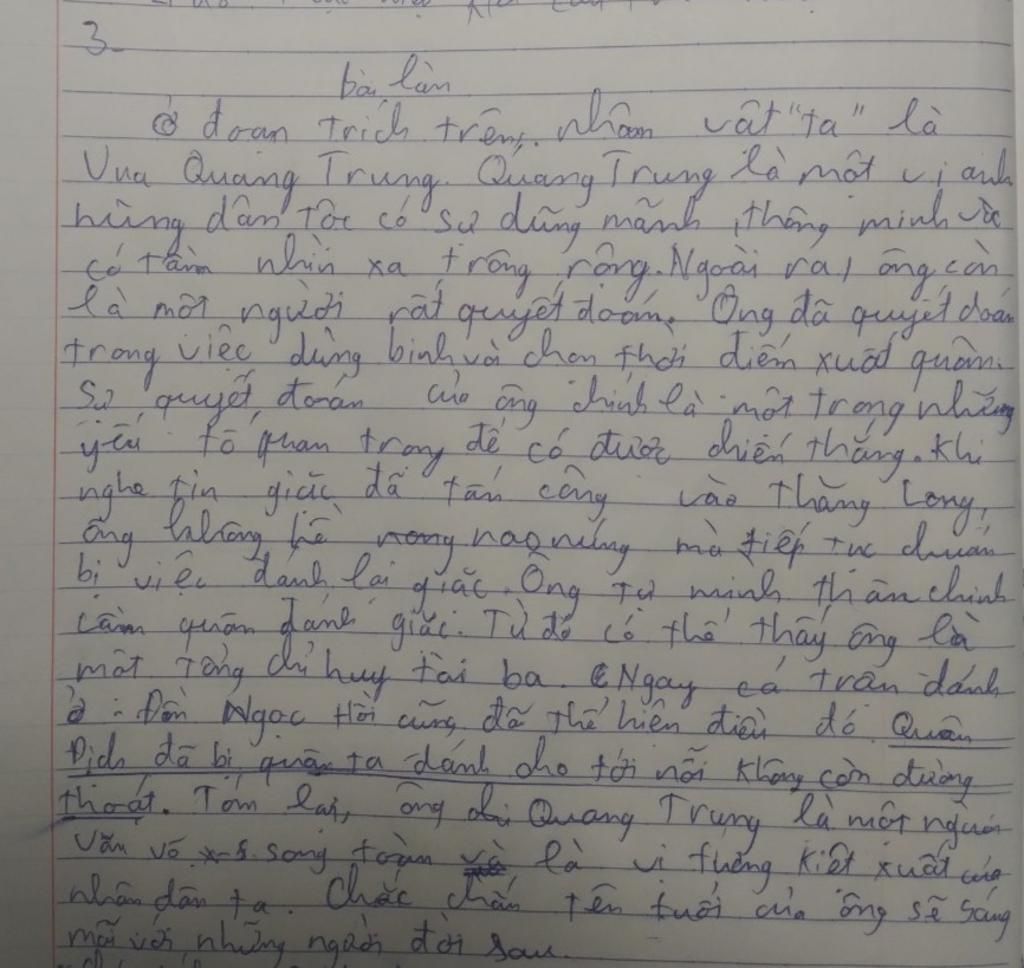 3-
bài làm
ở đoạn trích trên, nhân vật "ta" là
Vua Quang Trung. Quang Trung là một vị anh
hùng dân tộc có sự dũng mãnh, thông minh và
có tầm nhìn xa trông rộng. Ngoài ra, ông còn
là một người rất quyết đoán. Ông đã quyết đoán
trong việc dùng binh và chọn thời điểm xuất quân.
Sự quyết đoán của ông chính là một trong những
yếu tố quan trọng để có được chiến thắng. Khi
nghe tin giặc đã tấn công vào Thăng Long,
ông không hề nao núng mà tiếp tục chuẩn
bị việc đánh lại giặc. Ông tự mình thân chinh
cầm quân đánh giặc. Từ đó có thể thấy ông là
một tổng chỉ huy tài ba. Ngay cả trận đánh
ở Đồn Ngọc Hồi cũng đã thể hiện điều đó Quân
Địch đã bị quân ta đánh cho tới nỗi không còn đường
thoát. Tóm lại, Quang Trung là một người
văn võ song toàn là vị tướng kiệt xuất của
nhân dân ta. Chắc chắn tên tuổi của ông sẽ sáng
mãi với những người đời sau.